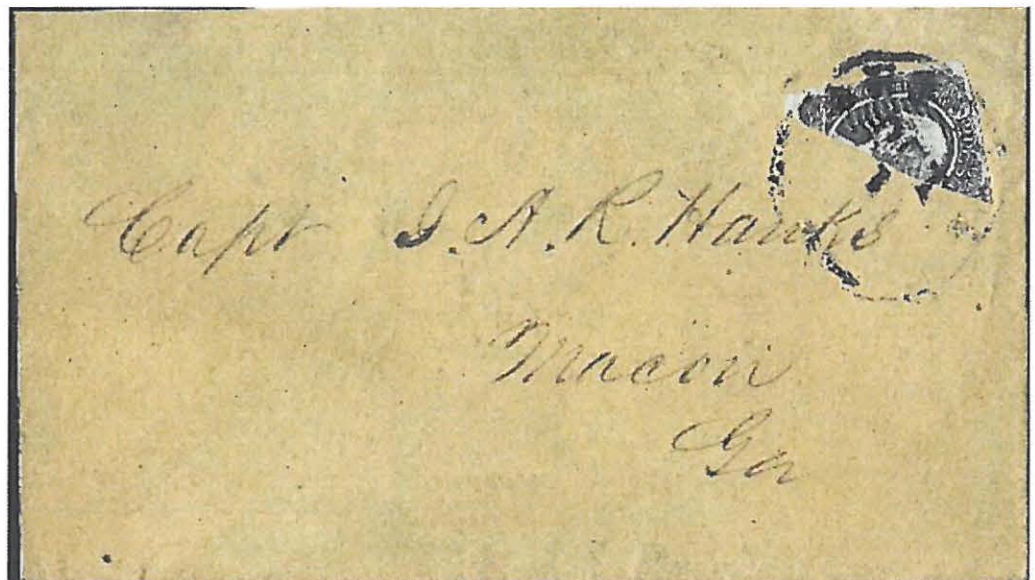 Capt G. A. R. Hanks
Macon
Ga